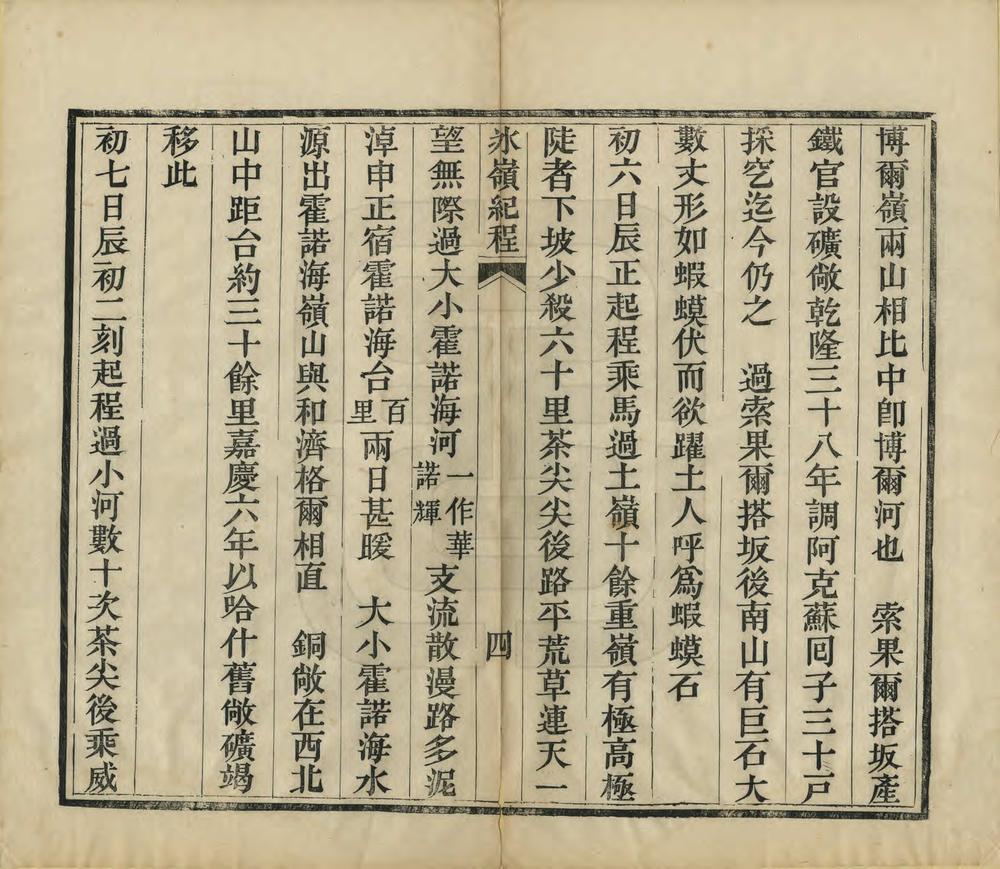 博爾嶺兩山相比中卽博爾河也　索果爾搭坂產
鐵官設礦廠乾隆三十八年調阿克蘇囘子三十戸
採穵迄今仍之　過索果爾搭坂後南山有巨石大
數丈形如蝦蟆伏而欲躍土人呼爲蝦蟆石
初六日辰正起程乘馬過土嶺十餘重嶺有極高極
陡者下坡少殺六十里茶尖尖後路平荒草連天一
氷嶺紀程　四
望無際過大小霍諾海河一作華諾輝支流散漫路多泥
淖申正宿霍諾海台百里兩日甚暖　大小霍諾海水
源出霍諾海嶺山與和濟格爾相直　銅廠在西北
山中距台約三十餘里嘉慶六年以哈什舊廠礦竭
移此
初七日辰初二刻起程過小河數十次茶尖後乘威